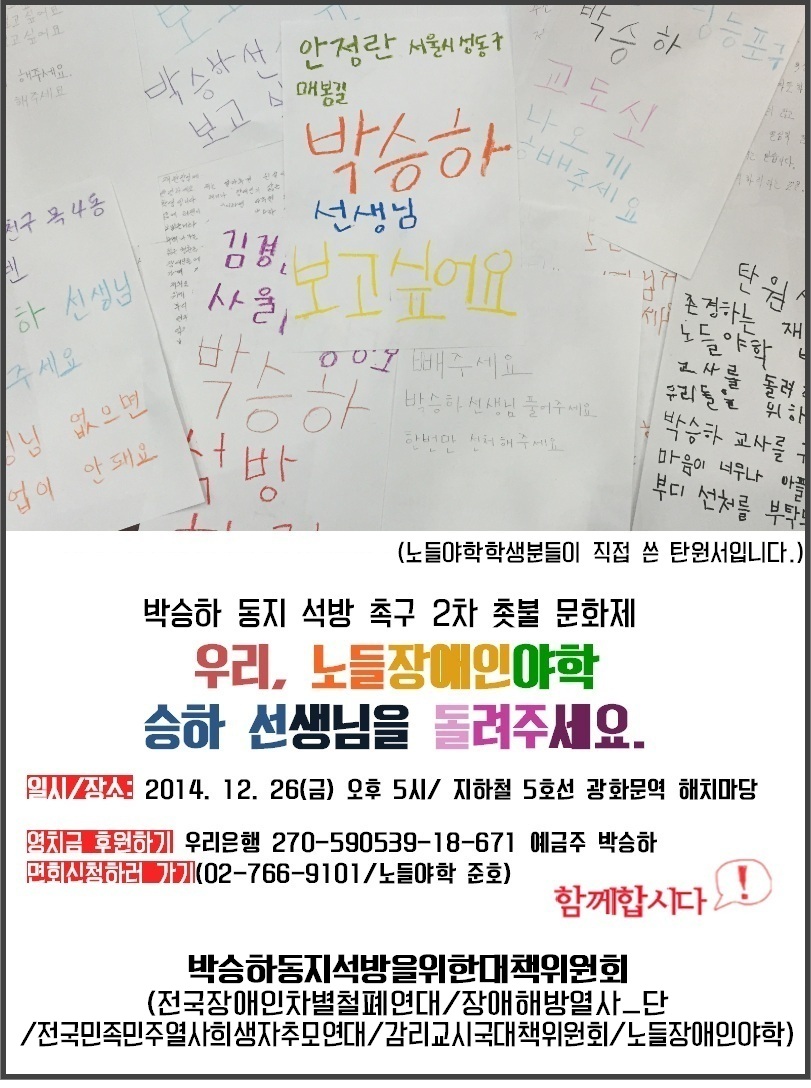 안정란 서울시 성동구
매봉길
박승하
선생님
보고싶어요
박승하 선
보고
박승하
교도소
나오게
해주세요.
해주세요
목4동
하 선생님
주세요
없으면
업이 안돼요
김경
사울
박승하
석방
빼주세요
박승하 선생님 풀어주세요
한번만 선처해주세요
탄원
존경하는 재
노들야학
교사를 돌려
우리들을 위하
박승하 교사를
마음이 너무나 아플
부디 선처를 부탁
(노들야학학생분들이 직접 쓴 탄원서입니다.)
박승하 동지 석방 촉구 2차 촛불 문화제
우리, 노들장애인야학
승하 선생님을 돌려주세요.
일시/장소: 2014. 12. 26(금) 오후 5시/ 지하철 5호선 광화문역 해치마당
영치금 후원하기 우리은행 270-590539-18-671 예금주 박승하
면회신청하러 가기(02-766-9101/노들야학 준호)
함께합시다 !
박승하동지석방을위한대책위원회
(전국장애인차별철폐연대/장애해방열사_단
/전국민족민주열사희생자추모연대/감리교시국대책위원회/노들장애인야학)